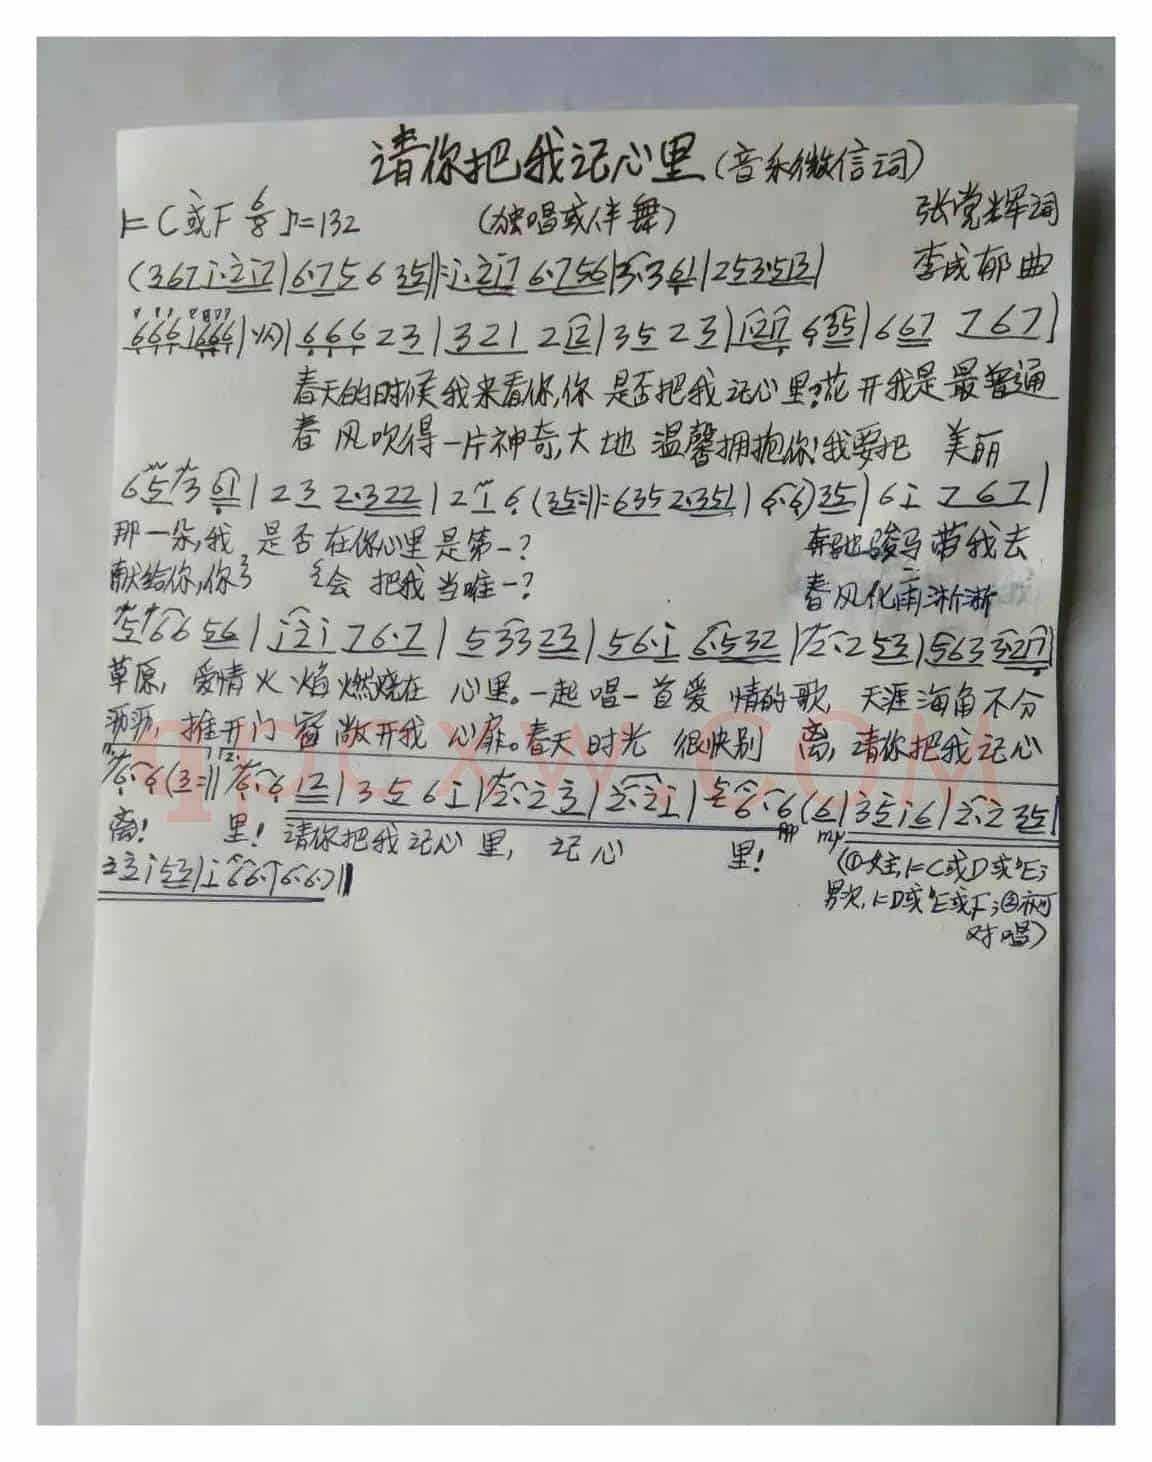 请你把我记心里(音乐微信词)
1=C或F 6/8 ♪=132 (独唱或伴舞) 张党辉词
李成郁曲
(367 i·2i7|6·75 6 35‖:i·2i7 6·756|3·3 61|2 53·513|
666 1666|%)|666 2 3|321 2 12|35 2 3|1217 6 35|667 767|
春天的时候我来看你,你 是否把我记心里?花 开我是 最普通
春 风吹得一片神奇,大地 温馨拥抱你!我要把 美丽
65 3 61|2 3 2·322|2 1 6 (35:‖:635 2·351|6·6)35|6 i 767|
那一朵,我 是否 在你心里 是第一? 奔驰骏马带我去
献给你,你 会 把我当唯一? 春风化雨淅淅
5 66 56|i2i 76·7|5 33 23|56·i 6·532|2·2 53|563 3·217|
草原, 爱情火 焰燃烧在 心里。一起唱一首爱 情的歌, 天涯海角不分
沥沥, 推开门 窗敞开我 心扉。春天时光 很快别 离, 请你把我记心
6·6(3:‖6·6 12|3 5 6 i|2·2 3|2·2i|5 6·6(6|35i6|2·2 35|
离! 里! 请你把我记心 里, 记心 里!
(①女主,1=C或D或♭E;
23i53|i66·|6·6·)‖
男次,1=D或♭E或F;②亦可
对唱)
qpcxw.com